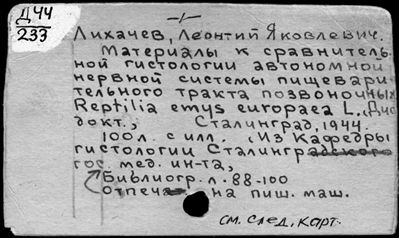 Д44
233
-/-
Лихачев, Леонтий Яковлевич.
Материалы к сравнитель-
ной гистологии автономной
нервной системы пищевари-
тельного тракта позвоночных
Reptilia emys europaea L. (Дис
докт., Сталинград, 1944.
100 л. с илл. (Из Кафедры
гистологии Сталинградского
гос. мед. ин-та,
Библиогр. л. 88-100
Отпеча на пиш. маш.
см. след. карт.